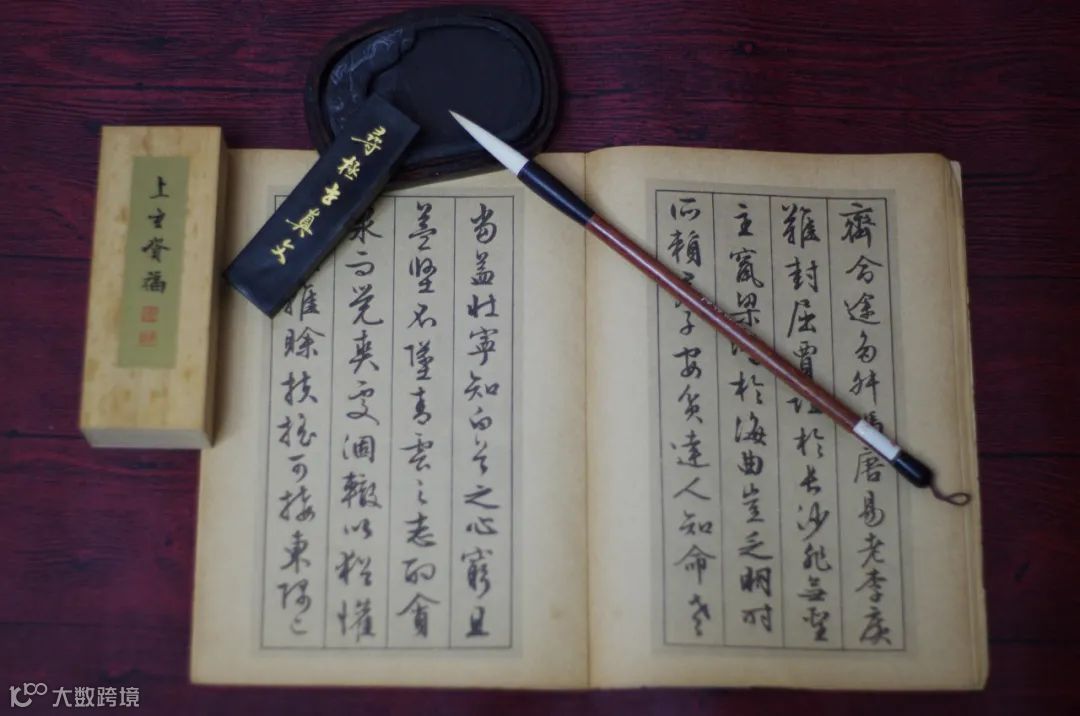 齊命途多舛馮唐易老李廣
難封屈賈誼於長沙非無聖
主竄梁鴻於海曲豈乏明時
所賴子安貧達人知命老
當益壯寧知白首之心窮且
益堅不墜青雲之志酌貪
泉而覺爽處涸轍以猶懽
雖賒扶搖可接東隅已
尋極真文
上福
大数跨境